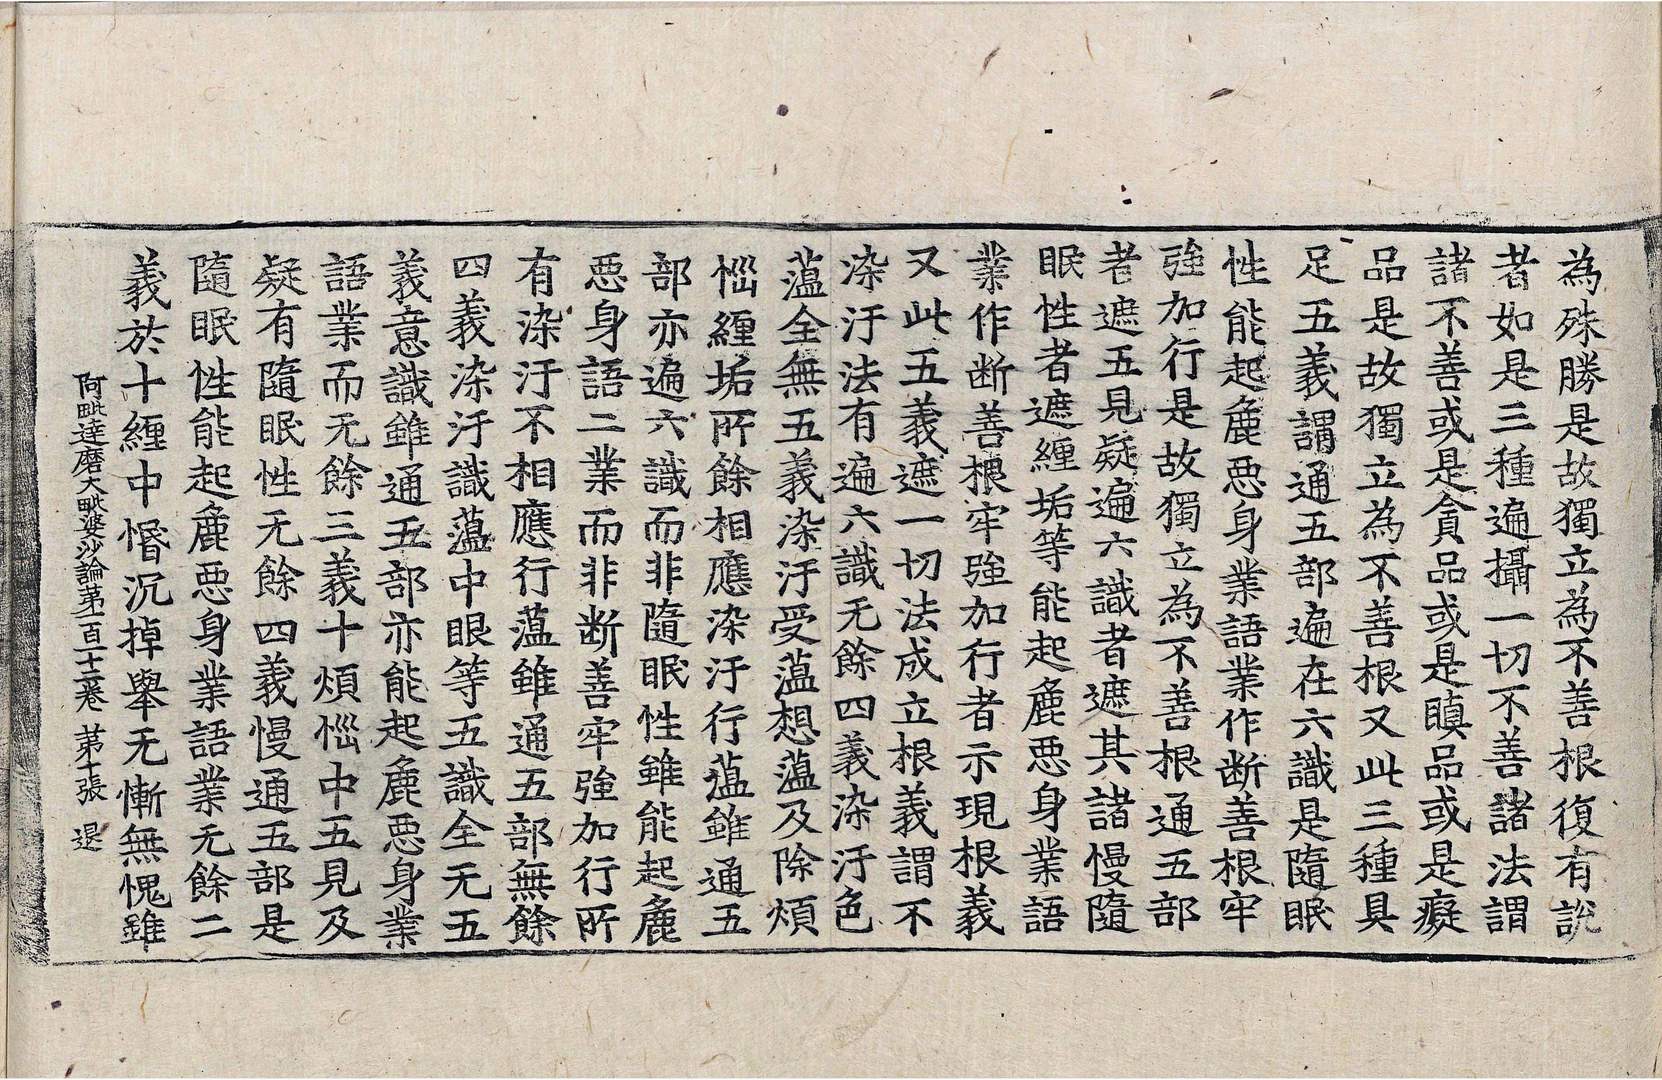 為殊勝是故獨立為不善根復有說
者如是三種遍攝一切不善諸法謂
諸不善或是貪品或是瞋品或是癡
品是故獨立為不善根又此三種具
足五義謂通五部遍在六識是隨眠
性能起麁惡身業語業作斷善根牢
強加行是故獨立為不善根通五部
者遮五見疑遍六識者遮其諸慢隨
眠性者遮纏垢等能起麁惡身業語
業作斷善根牢強加行者示現根義
又此五義遮一切法成立根義謂不
染汙法有遍六識无餘四義染汙色
蘊全無五義染汙受蘊想蘊及除煩
惱纏垢所餘相應染汙行蘊雖通五
部亦遍六識而非隨眠性雖能起麁
惡身語二業而非斷善牢強加行所
有染汙不相應行蘊雖通五部無餘
四義染汙識蘊中眼等五識全无五
義意識雖通五部亦能起麁惡身業
語業而无餘三義十煩惱中五見及
疑有隨眠性无餘四義慢通五部是
隨眠性能起麁惡身業語業无餘二
義於十纏中惛沉掉舉无慚無愧雖
阿毗達磨大毗婆沙論第一百十二卷 第十張 退